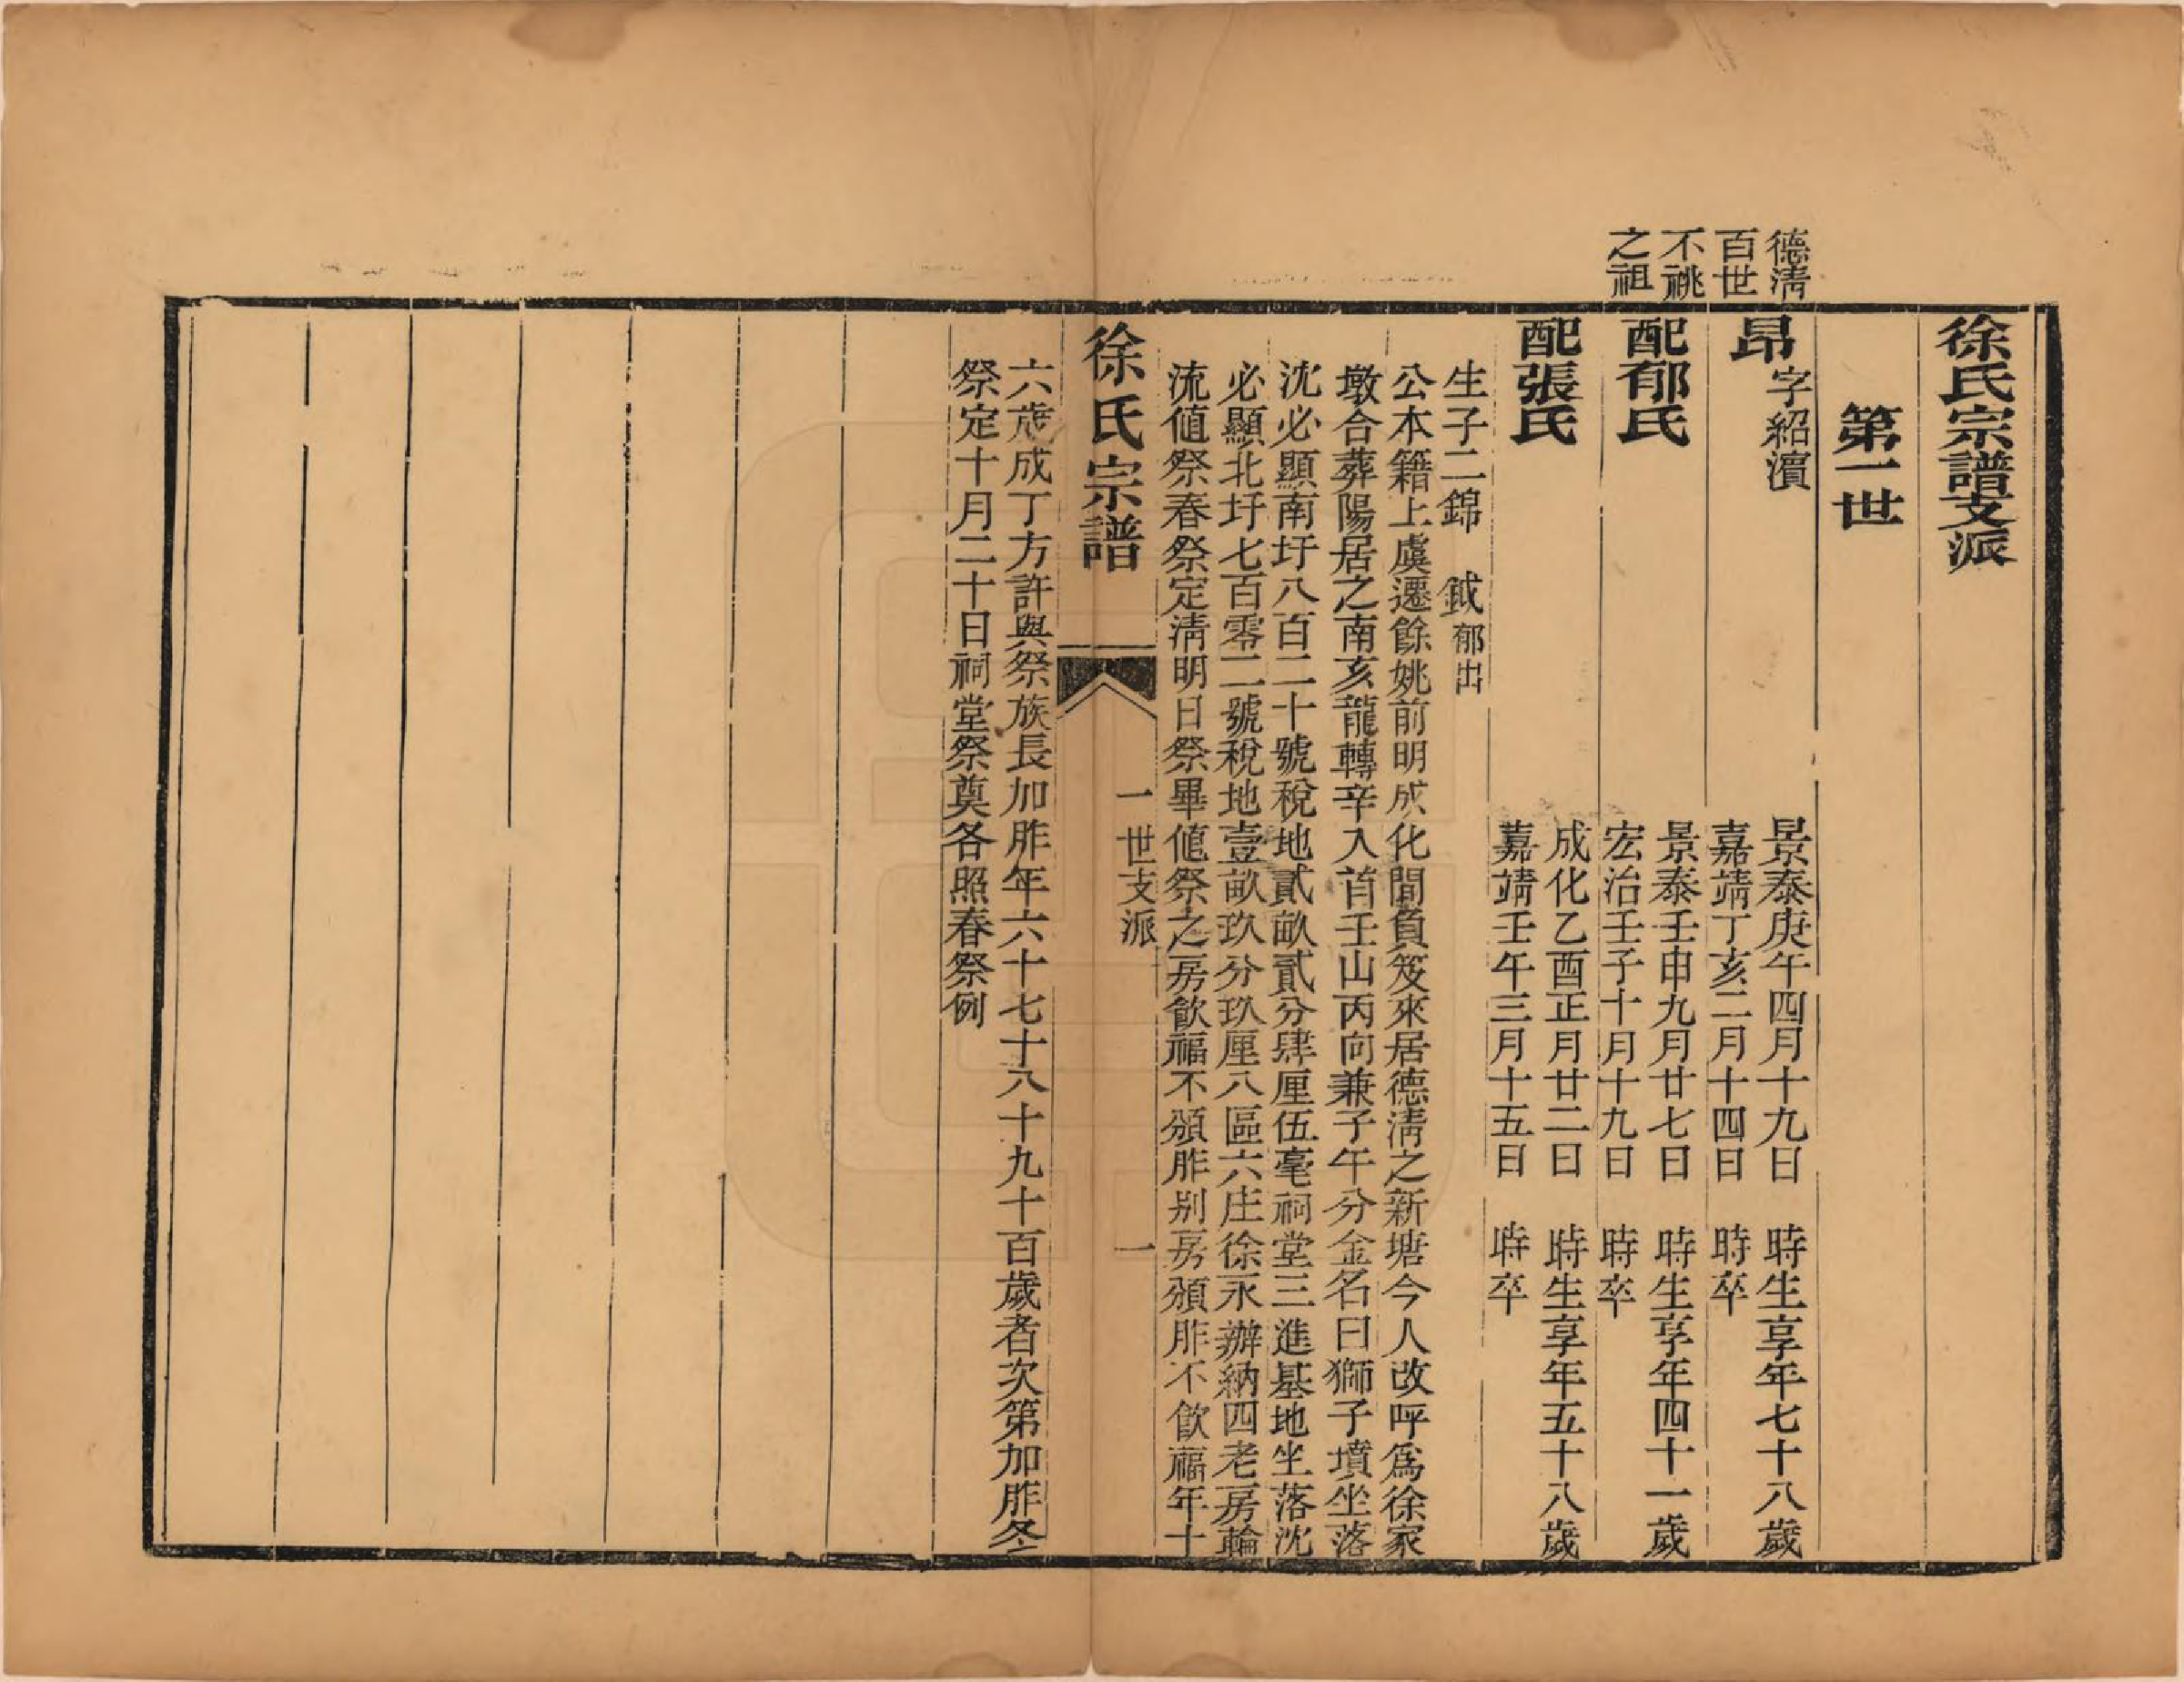 徐氏宗譜支派
第一世
德清
百世
不祧
之祖
昂字紹濵
景泰庚午四月十九日　時生享年七十八歲
嘉靖丁亥二月十四日　時卒
配郁氏
景泰壬申九月廿七日　時生享年四十一歲
宏治壬子十月十九日　時卒
配張氏
成化乙酉正月廿二日　時生享年五十八歲
嘉靖壬午三月十五日　時卒
生子二錦　鉞郁出
公本籍上虞遷餘姚前明成化間負笈來居德清之新塘今人改呼爲徐家
墩合葬陽居之南亥龍轉辛入首壬山丙向兼子午分金名曰獅子墳坐落
沈必顯南圩八百二十號稅地貳畝貳分肆厘伍毫祠堂三進基地坐落沈
必顯北圩七百零二號稅地壹畝玖分玖厘八區六庄徐永辦納四老房輪
流値祭春祭定清明日祭畢値祭之房飲福不頒胙别房頒胙不飲福年十
徐氏宗譜
一世支派
一
六歲成丁方許與祭族長加胙年六十七十八十九十百歲者次第加胙冬
祭定十月二十日祠堂祭奠各照春祭例